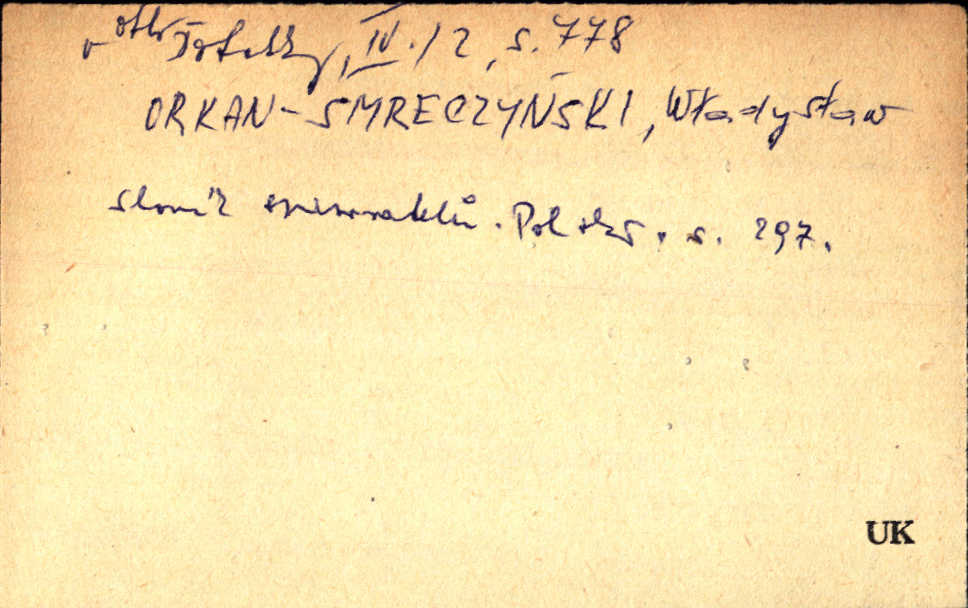 v Ottě Dodatky, IV./2, s. 778
ORKAN-SMRECZYŃSKI, Władysław
slovník spisovatelů. Polsko. s. 297.
UK